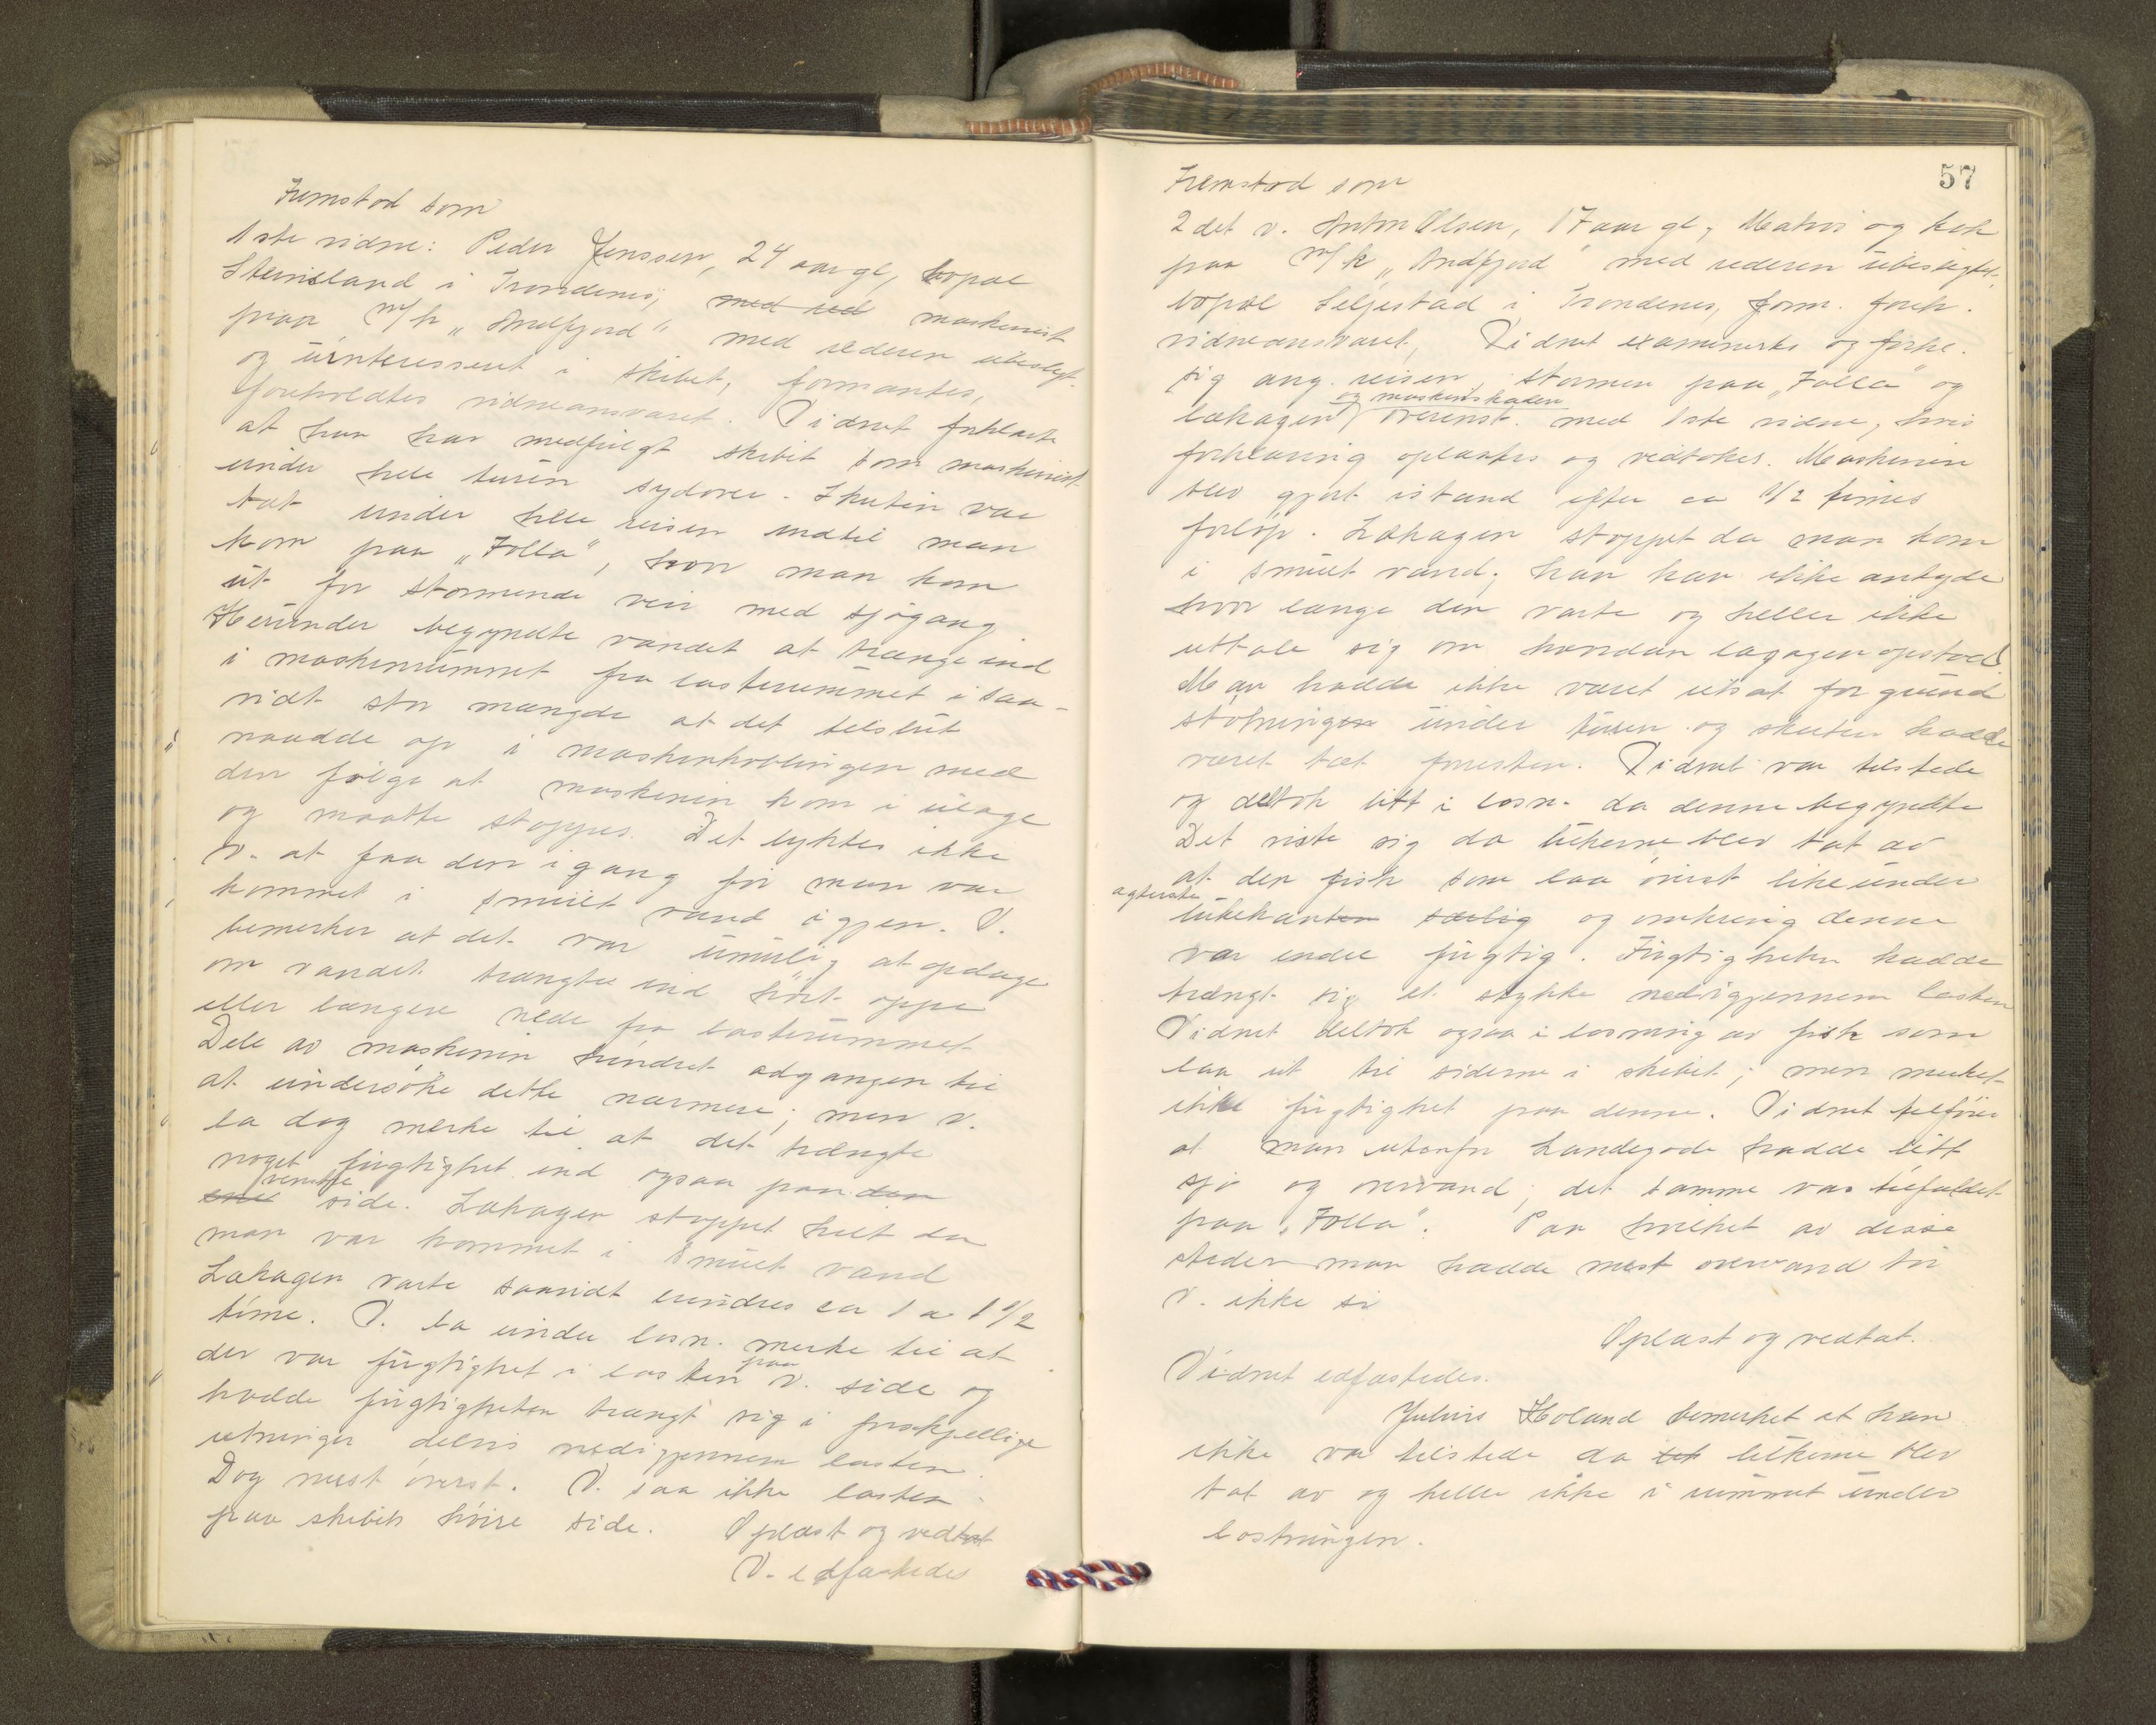 Fremstod som
1ste vidne: Peder Jenssen, 24 aar gl, bopæl
Steinsland i Trondenes, med red maskinist
paa m/k „Andfjord" med rederen ubeslegt.
og uinteressert i skibet, formantes,
foreholdtes vidneansvaret. Vidnet forklarte
at han har medfulgt skibet som maskinist
under hele turen sydover. Skuten var
tæt under hele reisen indtil man
kom paa „Folla", hvor man kom
ut for stormende veir med sjøgang
Herunder begyndte vandet at trænge ind
i maskinrummet fra lasterummet i saa-
vidt stor mængde at det tilslut
naadde op i maskinkoblingen med
den følge at maskinen kom i ulage
og maatte stoppes. Det lyktes ikke
V. at faa den igang før man var
kommet i smult vand igjen. V.
bemerker at det var umulig at opdage
om vandet trængte ind høit oppe
eller længere nede fra lasterummet
Dele av maskinen hindret adgangen til
at undersøke dette nærmere; men V.
la dog merke til at det trængte
noget fugtighet ind ogsaa paa den
ene venstre side. Lækagen stoppet helt da
man var kommet i smult vand
Lækagen varte saavidt erindres ca 1 a 1 1/2
time. V. la under losn. merke til at
der var fugtighet i lasten paa v. side og
hadde fugtigheten trængt sig i forskjellige
retninger delvis nedigjennem lasten.
Dog mest øverst. V. saa ikke lasten
paa skibets høire side. Oplæst og vedtat
V. edfæstedes
57
Fremstod som
2det v. Anton Olsen, 17 aar gl, Matros og kok
paa m/k „Andfjord" med rederen ubeslegtet,
bopæl Seljestad i Trondenes, form. foreh.
vidneansvaret, Vidnet examinertes og forkl.
sig ang. reisen, stormen paa „Folla" og
lækagen og maskinskaden overenst. med 1ste vidne, hvis
forklaring oplæstes og vedtokes. Maskinen
blev gjort istand efter ca 1/2 times
forløp. Lækagen stoppet da man kom
i smult vand; han kan ikke antyde
hvor længe den varte og heller ikke
uttale sig om hvordan lægagen opstod
Man hadde ikke været utsat for grund
støtninger under turen og skuten hadde
været tæt forresten. Vidnet var tilstede
og deltok litt i losn. da denne begyndte
Det viste sig da lukerne blev tat av
at den fisk som laa øverst like under
agterste lukekanten særlig og omkring denne
var endel fugtig. Fugtigheten hadde
trængt sig et stykke nedigjennem lasten
Vidnet deltok ogsaa i losning av fisk som
laa ut til siderne i skibet; men merket
ikke fugtighet paa denne. Vidnet tilføier
at man utenfor Landegode hadde litt
sjø og overvand; det samme var tilfældet
paa „Folla". Paa hvilket av disse
steder man hadde mest overvand tør
V. ikke si
Oplæst og vedtat.
Vidnet edfæstedes.
Julius Holand bemerket at han
ikke var tilstede da lukerne blev
tat av og heller ikke i rummet under
lostningen.